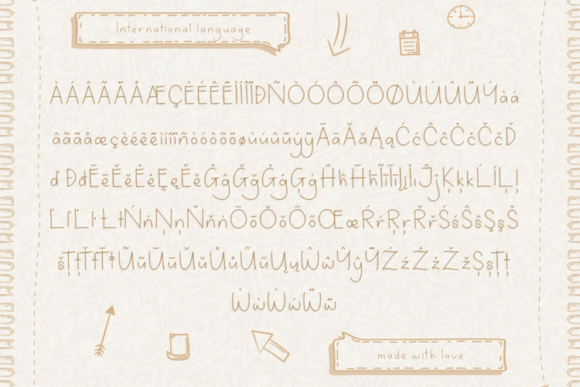 International language
ÀÁÂÃÄÅÆÇÈÉÊËÌÍÎÏÐÑÒÓÔÕÖØÙÚÛÜÝàá
âãäåæçèéêëìíîïñòóôõöøùúûüýÿĀāĂăĄąĆćĈĉĊċČčĎ
ďĐđĒēĔĕĖėĘęĚěĜĝĞğĠġĢģĤĥĦħĨĩĪīĮįİĴĵĶķĸĹĺĻļ
ĽľĿŀŁłŃńŅņŇňŌōŎŏŐőŒœŔŕŖŗŘřŚśŜŝŞşŠ
šŢţŤťŦŧŨũŪūŬŭŮůŰűŲųŴŵŶŷŸŹźŻżŽžȘșȚț
ẀẁẂẃẄẅ
made with love